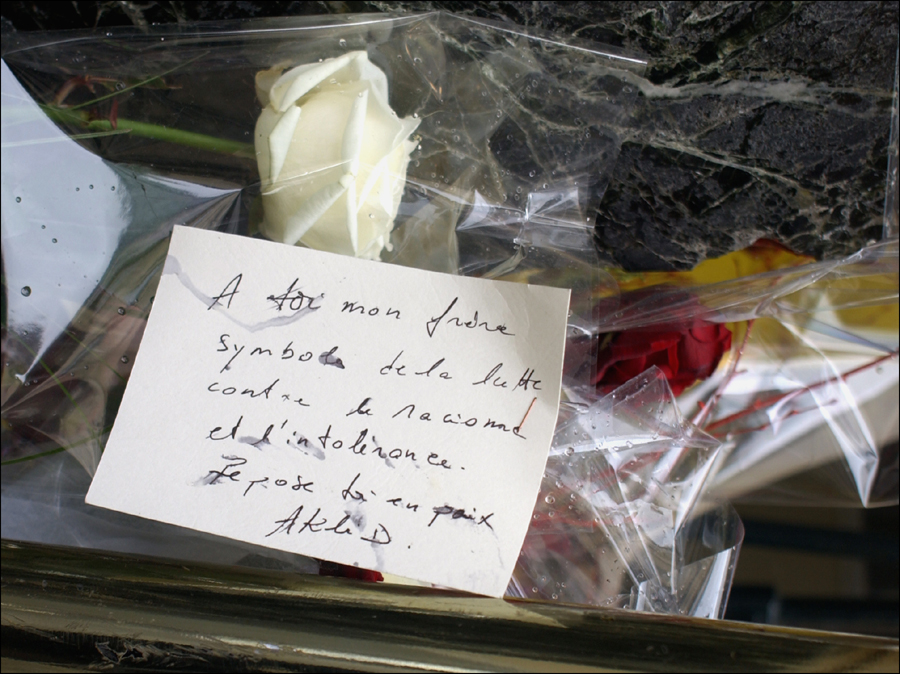 A toi mon frère
symbole de la lutte
contre le racisme
et l'intolérance.
Repose toi en paix